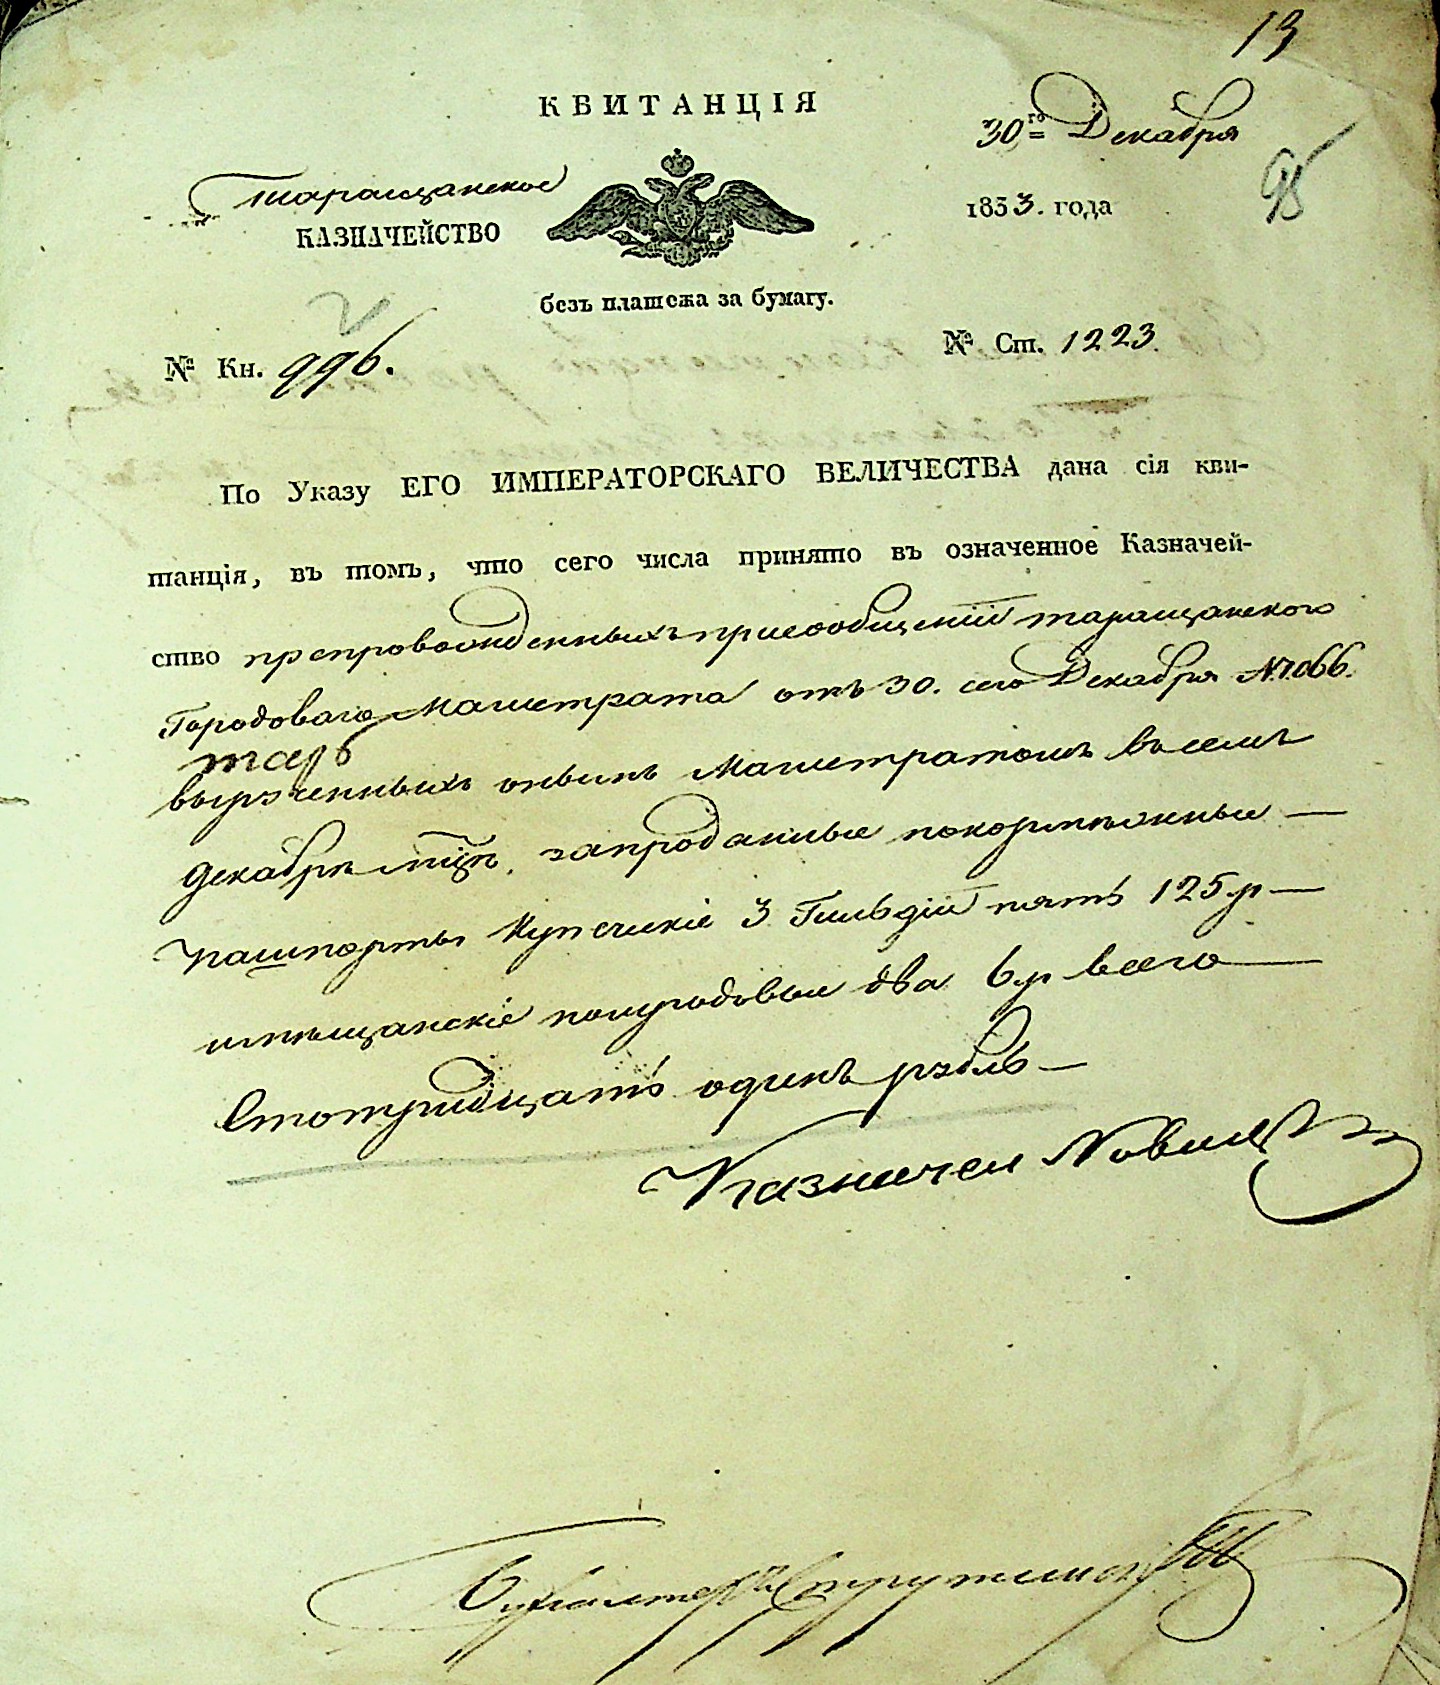 13
КВИТАНЦІЯ
30го Декабря
95
Таращанское
КАЗНАЧЕЙСТВО
1833. года
безъ платежа за бумагу.
№ Кн. 996.
№ Ст. 1223.
По Указу ЕГО ИМПЕРАТОРСКАГО ВЕЛИЧЕСТВА дана сія кви-
танція, въ томъ, что сего числа принято въ означенное Казначей-
ство препровожденныхъ присообщеніи таращанского
Городоваго Магистрата отъ 30. сего Декабря №1066.
вырученныхъ онымъ Магистратомъ въ семъ
декабрѣ мцѣ. запроданные покормежные —
пашпорты Купеческіе 3 Гильдіи пять 125 р —
мѣщанскіе полугодовые два 6 р всего —
Стотридцать одинъ рубль —
Казначей
Бухгалтеръ